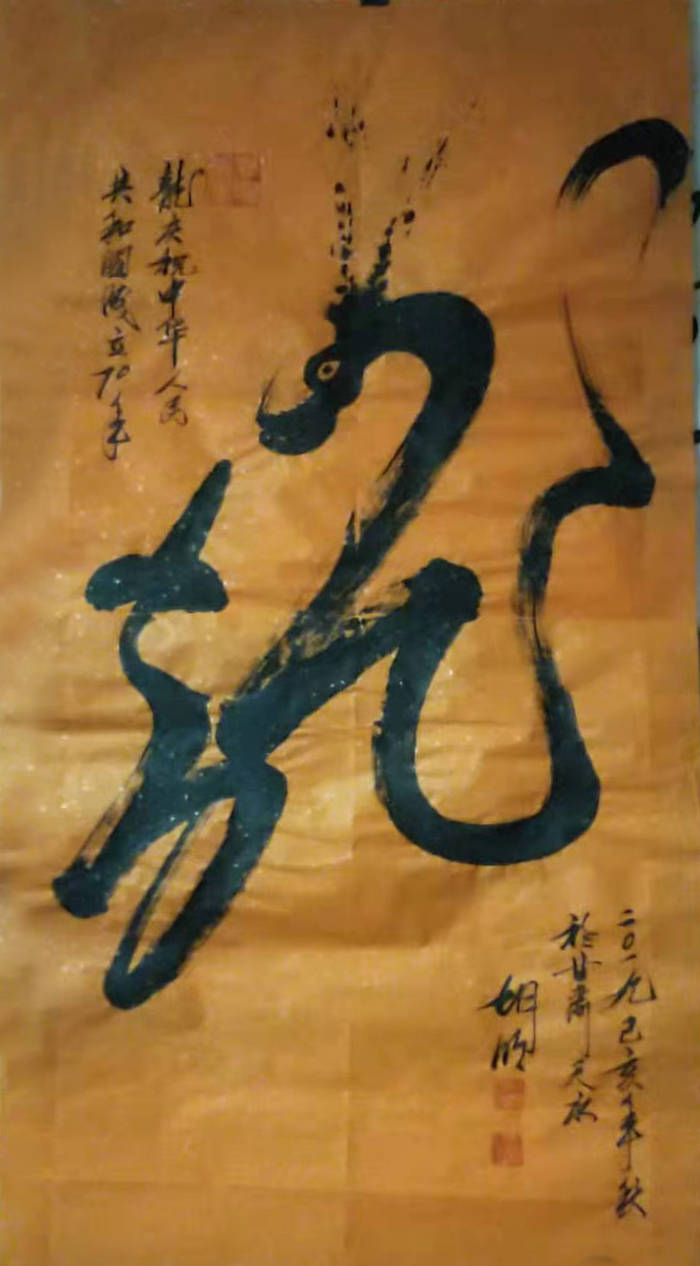 龍
龍庆祝中华人民
共和國成立70年
二〇一九己亥年秋
於甘肃天水